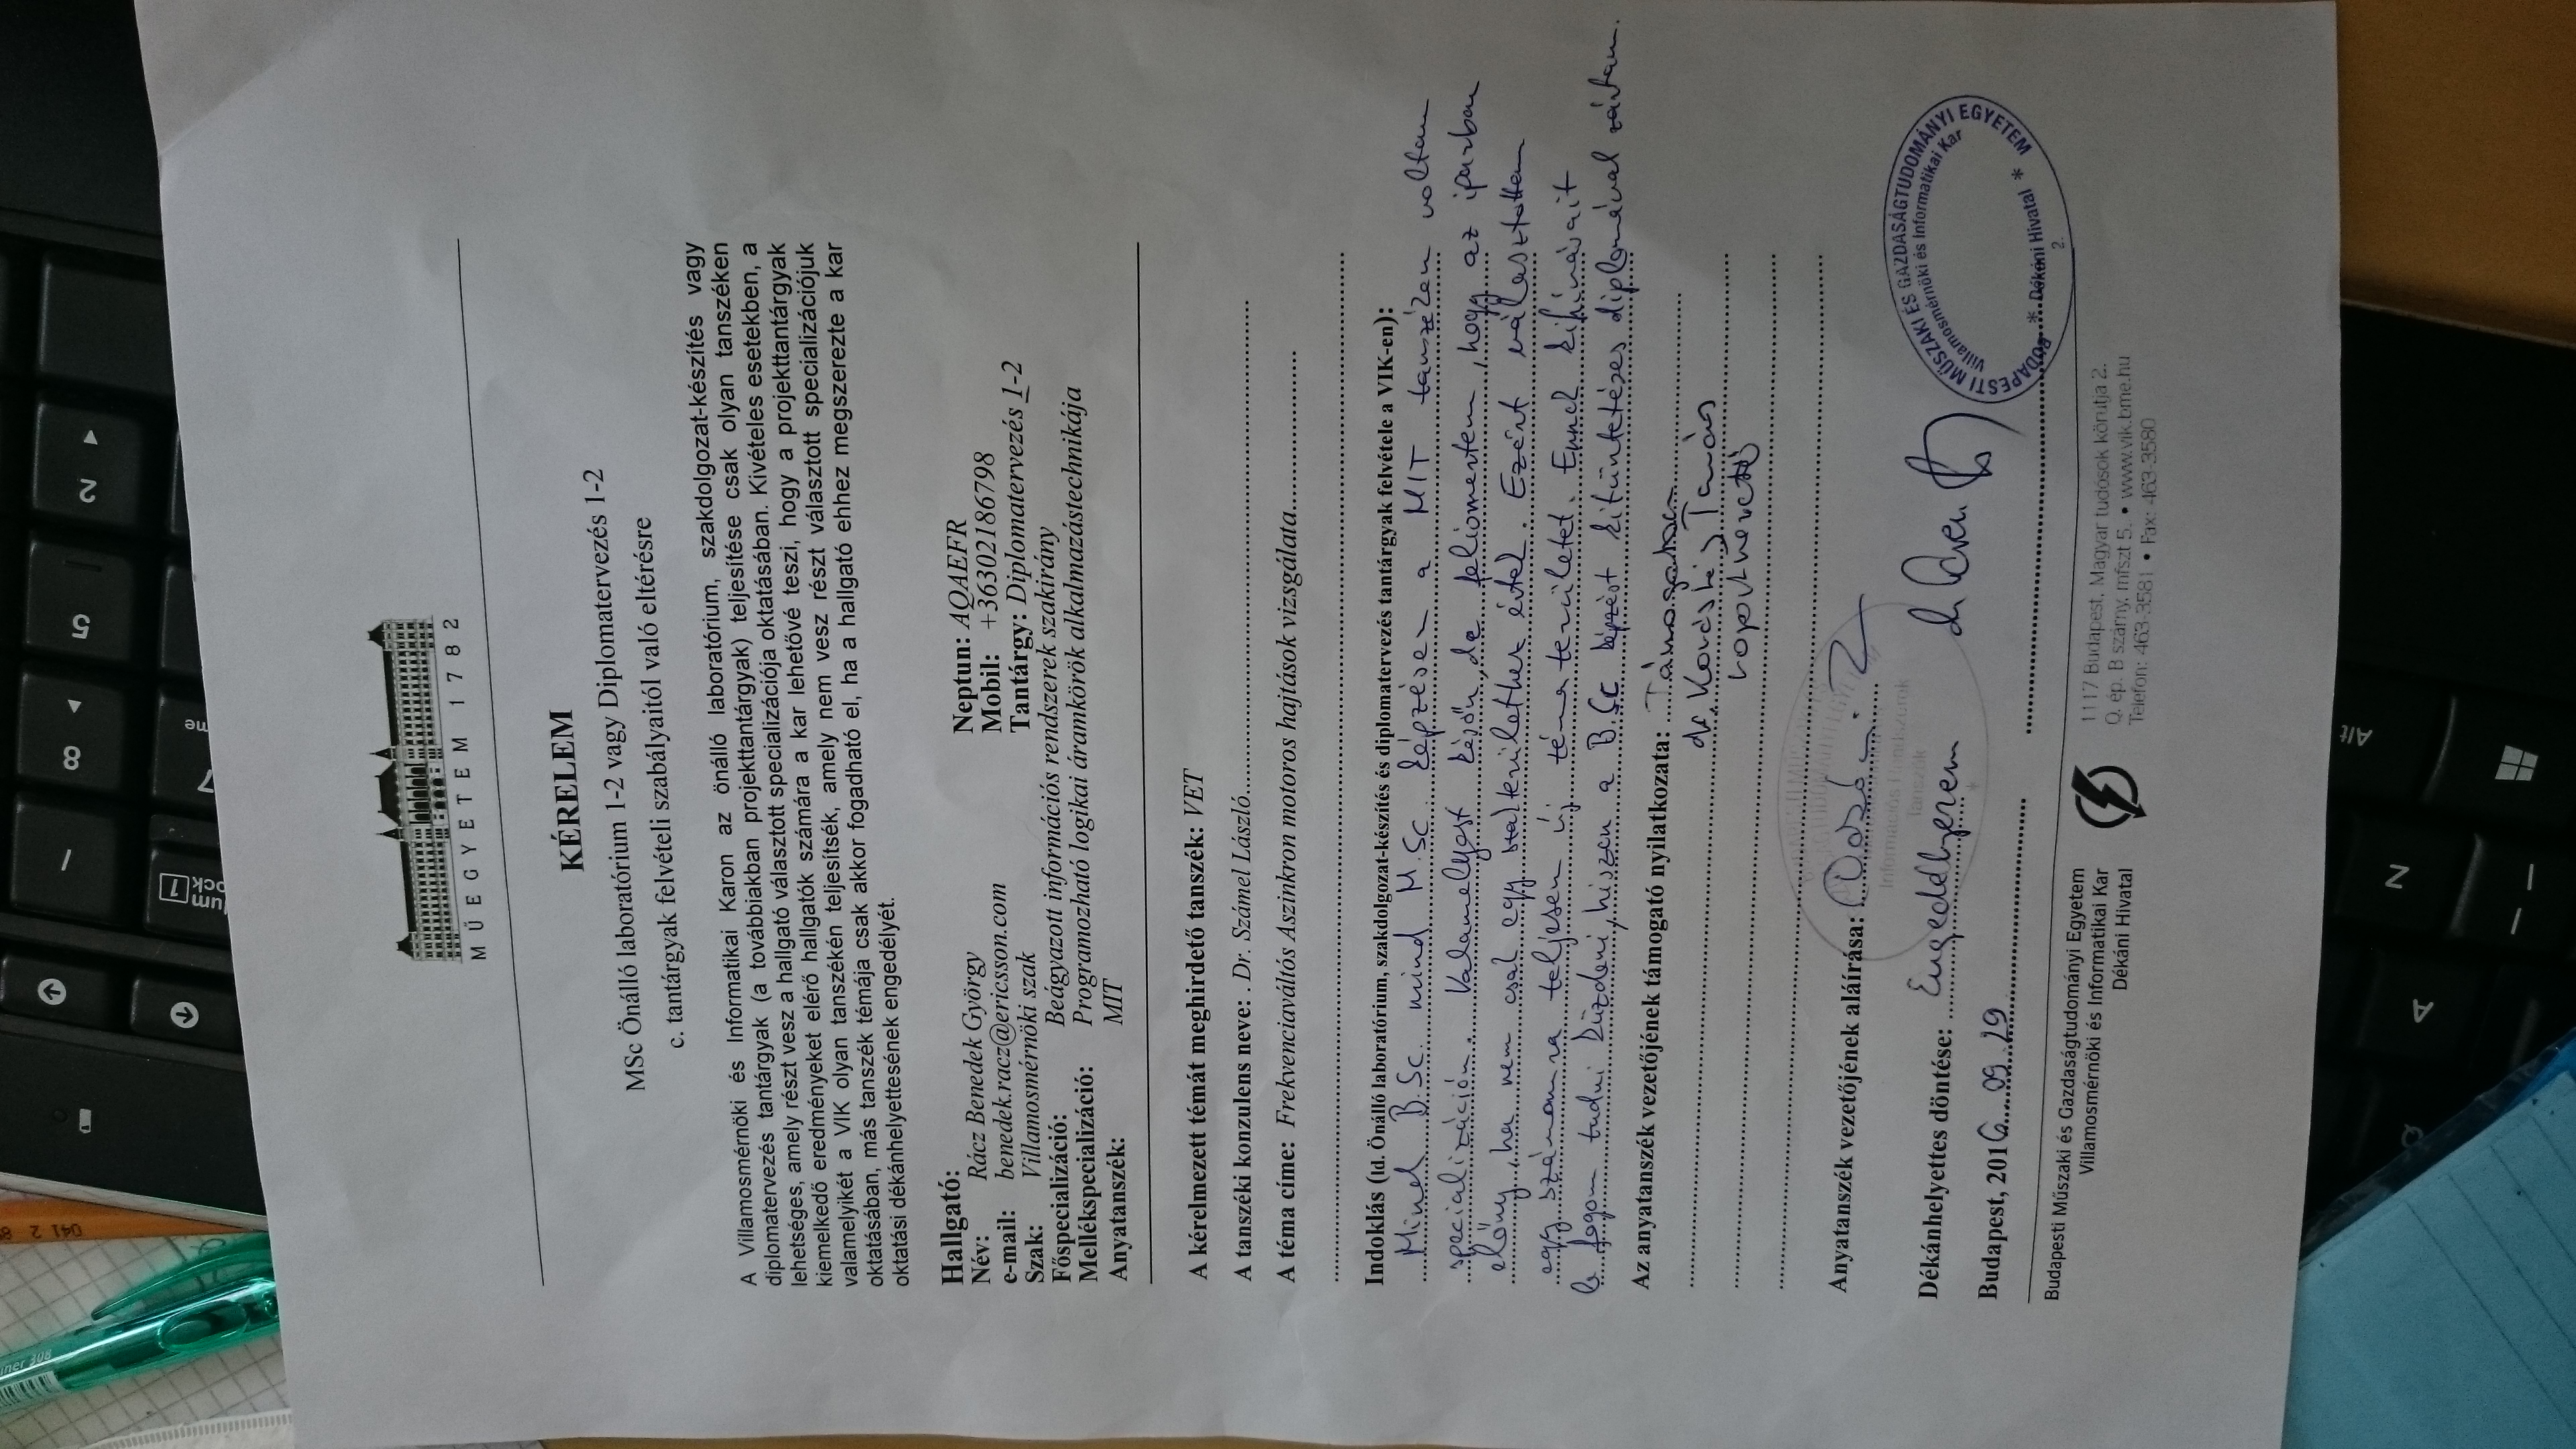 MŰEGYETEM 1782
KÉRELEM
MSc Önálló laboratórium 1-2 vagy Diplomatervezés 1-2
c. tantárgyak felvételi szabályaitól való eltérésre
A Villamosmérnöki és Informatikai Karon az önálló laboratórium, szakdolgozat-készítés vagy
diplomatervezés tantárgyak (a továbbiakban projekttantárgyak) teljesítése csak olyan tanszéken
lehetséges, amely részt vesz a hallgató választott specializációja oktatásában. Kivételes esetekben, a
kiemelkedő eredményeket elérő hallgatók számára a kar lehetővé teszi, hogy a projekttantárgyak
valamelyikét a VIK olyan tanszékén teljesítsék, amely nem vesz részt választott specializációjuk
oktatásában, más tanszék témája csak akkor fogadható el, ha a hallgató ehhez megszerezte a kar
oktatási dékánhelyettesének engedélyét.
Hallgató:
Név: Rácz Benedek György Neptun: AQAEFR
e-mail: benedek.racz@ericsson.com Mobil: +36302186798
Szak: Villamosmérnöki szak Tantárgy: Diplomatervezés 1-2
Főspecializáció: Beágyazott információs rendszerek szakirány
Mellékspecializáció: Programozható logikai áramkörök alkalmazástechnikája
Anyatanszék: MIT
A kérelmezett témát meghirdető tanszék: VET
A tanszéki konzulens neve: . Dr. Számel László
A téma címe: Frekvenciaváltós Aszinkron motoros hajtások vizsgálata
Indoklás (ld. Önálló laboratórium, szakdolgozat-készítés és diplomatervezés tantárgyak felvétele a VIK-en):
Mind B.Sc. mind M.Sc. képzésen a MIT tanszéken voltam
specializáción. Valamelyest későn, de felismertem, hogy az iparban
előny, ha nem csak egy szakterülethez értek. Ezért választottam
egy számomra teljesen új tématerületet. Ennek kihívásait
le fogom tudni küzdeni, hiszen a B.Sc képzést kitüntetéses diplomával zártam.
Az anyatanszék vezetőjének támogató nyilatkozata: Támogatom
dr. Kovácsházy Tamás
csoportvezető
Anyatanszék vezetőjének aláírása:
Dékánhelyettes döntése: Engedélyezem
Budapest, 2016 09 29
BUDAPESTI MŰSZAKI ÉS GAZDASÁGTUDOMÁNYI EGYETEM
Villamosmérnöki és Informatikai Kar
* Dékáni Hivatal *
2.
Budapesti Műszaki és Gazdaságtudományi Egyetem
Villamosmérnöki és Informatikai Kar
Dékáni Hivatal
1117 Budapest, Magyar tudósok körútja 2.
Q. ép. B szárny, mfszt 5. • www.vik.bme.hu
Telefon: 463-3581 • Fax: 463-3580
A
Z
Alt
7
8
5
2